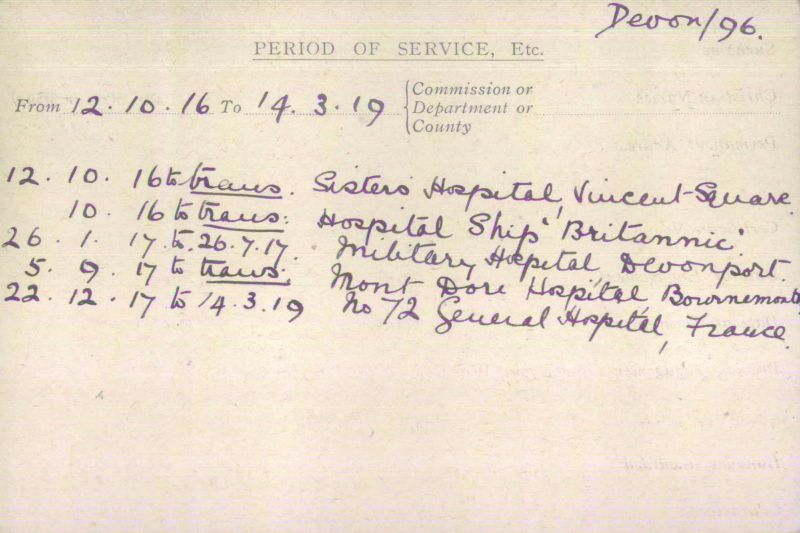 Devon/96.
PERIOD OF SERVICE, Etc.
From 12.10.16 To 14.3.19 {Commission or
Department or
County
12. 10. 16 to trans. Sisters Hospital, Vincent Square.
10. 16 to trans: Hospital Ship 'Britannic'.
26. 1. 17 to 26.7.17. Military Hospital Devonport.
5. 9. 17 to trans: Mont Dore Hospital, Bournemouth
22. 12. 17 to 14.3.19 No 72 General Hospital, France.